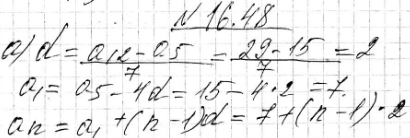 N 16.48
a) d = a12 - a5 / 7 = 29 - 15 / 7 = 2
a1 = a5 - 4d = 15 - 4·2 = 7.
an = a1 + (n - 1)d = 7 + (n - 1)·2